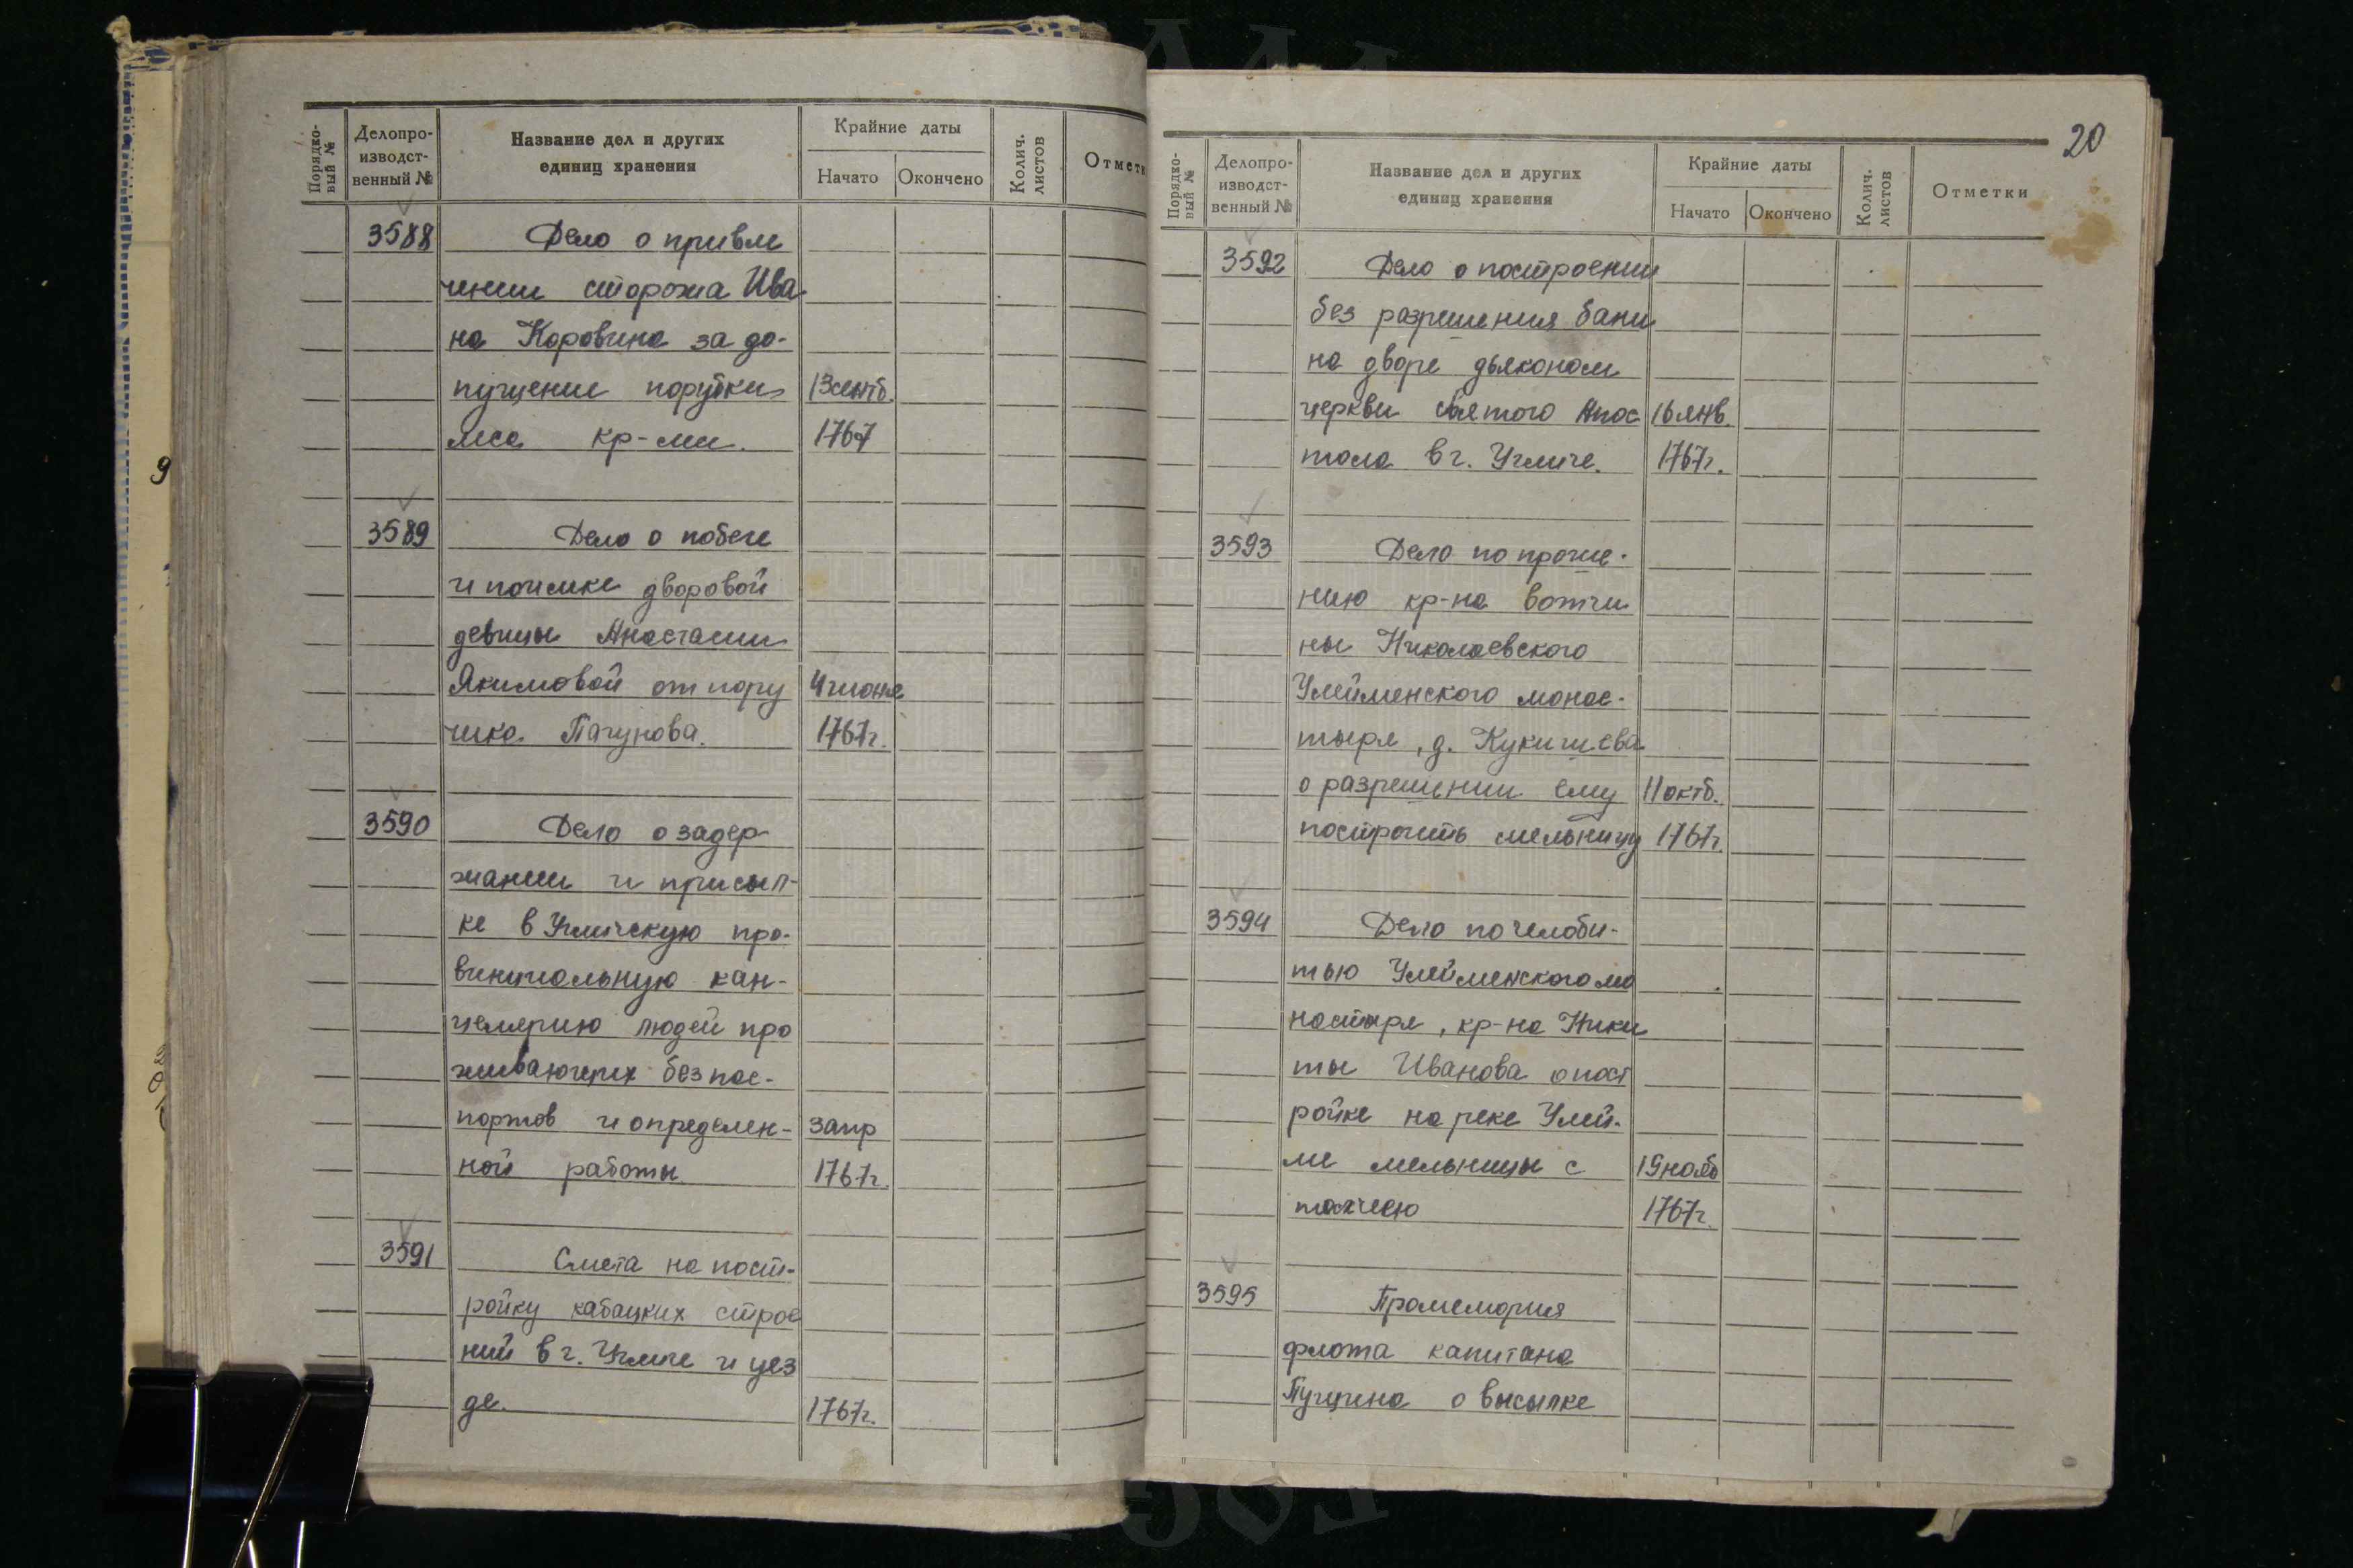 Порядко-
вый №
Делопро-
изводст-
венный №
Название дел и других
единиц хранения
Крайние даты
Начато
Окончено
Колич.
листов
Отметк
3588
Дело о привле
чении сторожа Ива
на Коровина за до-
пущение порубки 13 сентб.
леса кр-ми. 1767
3589
Дело о побеге
и поимке дворовой
девицы Анастасии
Якимовой от пору 4 июня
чика Пагунова. 1767г.
3590
Дело о задер-
жании и присыл-
ке в Угличскую про-
винциальную кан-
целярию людей про
живающих без пас-
портов и определен- 3 апр
ной работы 1767г.
3591
Смета на пост-
ройку кабацких строе
ний в г. Угличе и уез
де. 1767г.
20
Порядко-
вый №
Делопро-
изводст-
венный №
Название дел и других
единиц хранения
Крайние даты
Начато
Окончено
Колич.
листов
Отметки
3592
Дело о построении
без разрешения бани
на дворе дьяконом
церкви святого Апос 16 янв.
тола в г. Угличе. 1767г.
3593
Дело по проше-
нию кр-на вотчи
ны Николаевского
Улейменского монас-
тыря, д. Кукишева
о разрешении ему 11 октб.
построить мельницу 1767г.
3594
Дело по челоби-
тью Улейменского мо
настыря, кр-на Ники
ты Иванова о пост
ройке на реке Улей-
ме мельницы с 19 нояб
толчеею 1767г.
3595
Промемория
флота капитана
Пущина о высылке
9